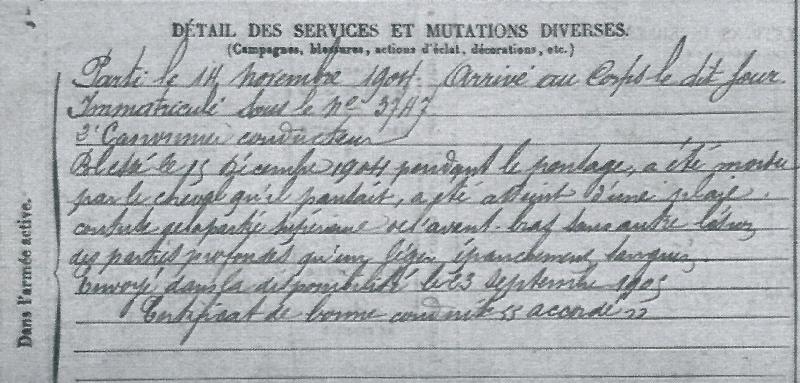 DÉTAIL DES SERVICES ET MUTATIONS DIVERSES.
(Campagnes, blessures, actions d'éclat, décorations, etc.)
Parti le 14 novembre 1904. Arrivé au Corps le dit Jour
Immatriculé sous le No 3747
2e Canonnier conducteur
Blessé le 15 Décembre 1904 pendant le pansage, a été mordu
par le cheval qu'il pansait, a été atteint d'une plaie
contuse de la partie supérieure de l'avant-bras sans autre lésion
des parties profondes qu'un léger épanchement sanguin.
Envoyé dans la disponibilité le 23 septembre 1905
Certificat de bonne conduite "accordé"
Dans l'armée active.